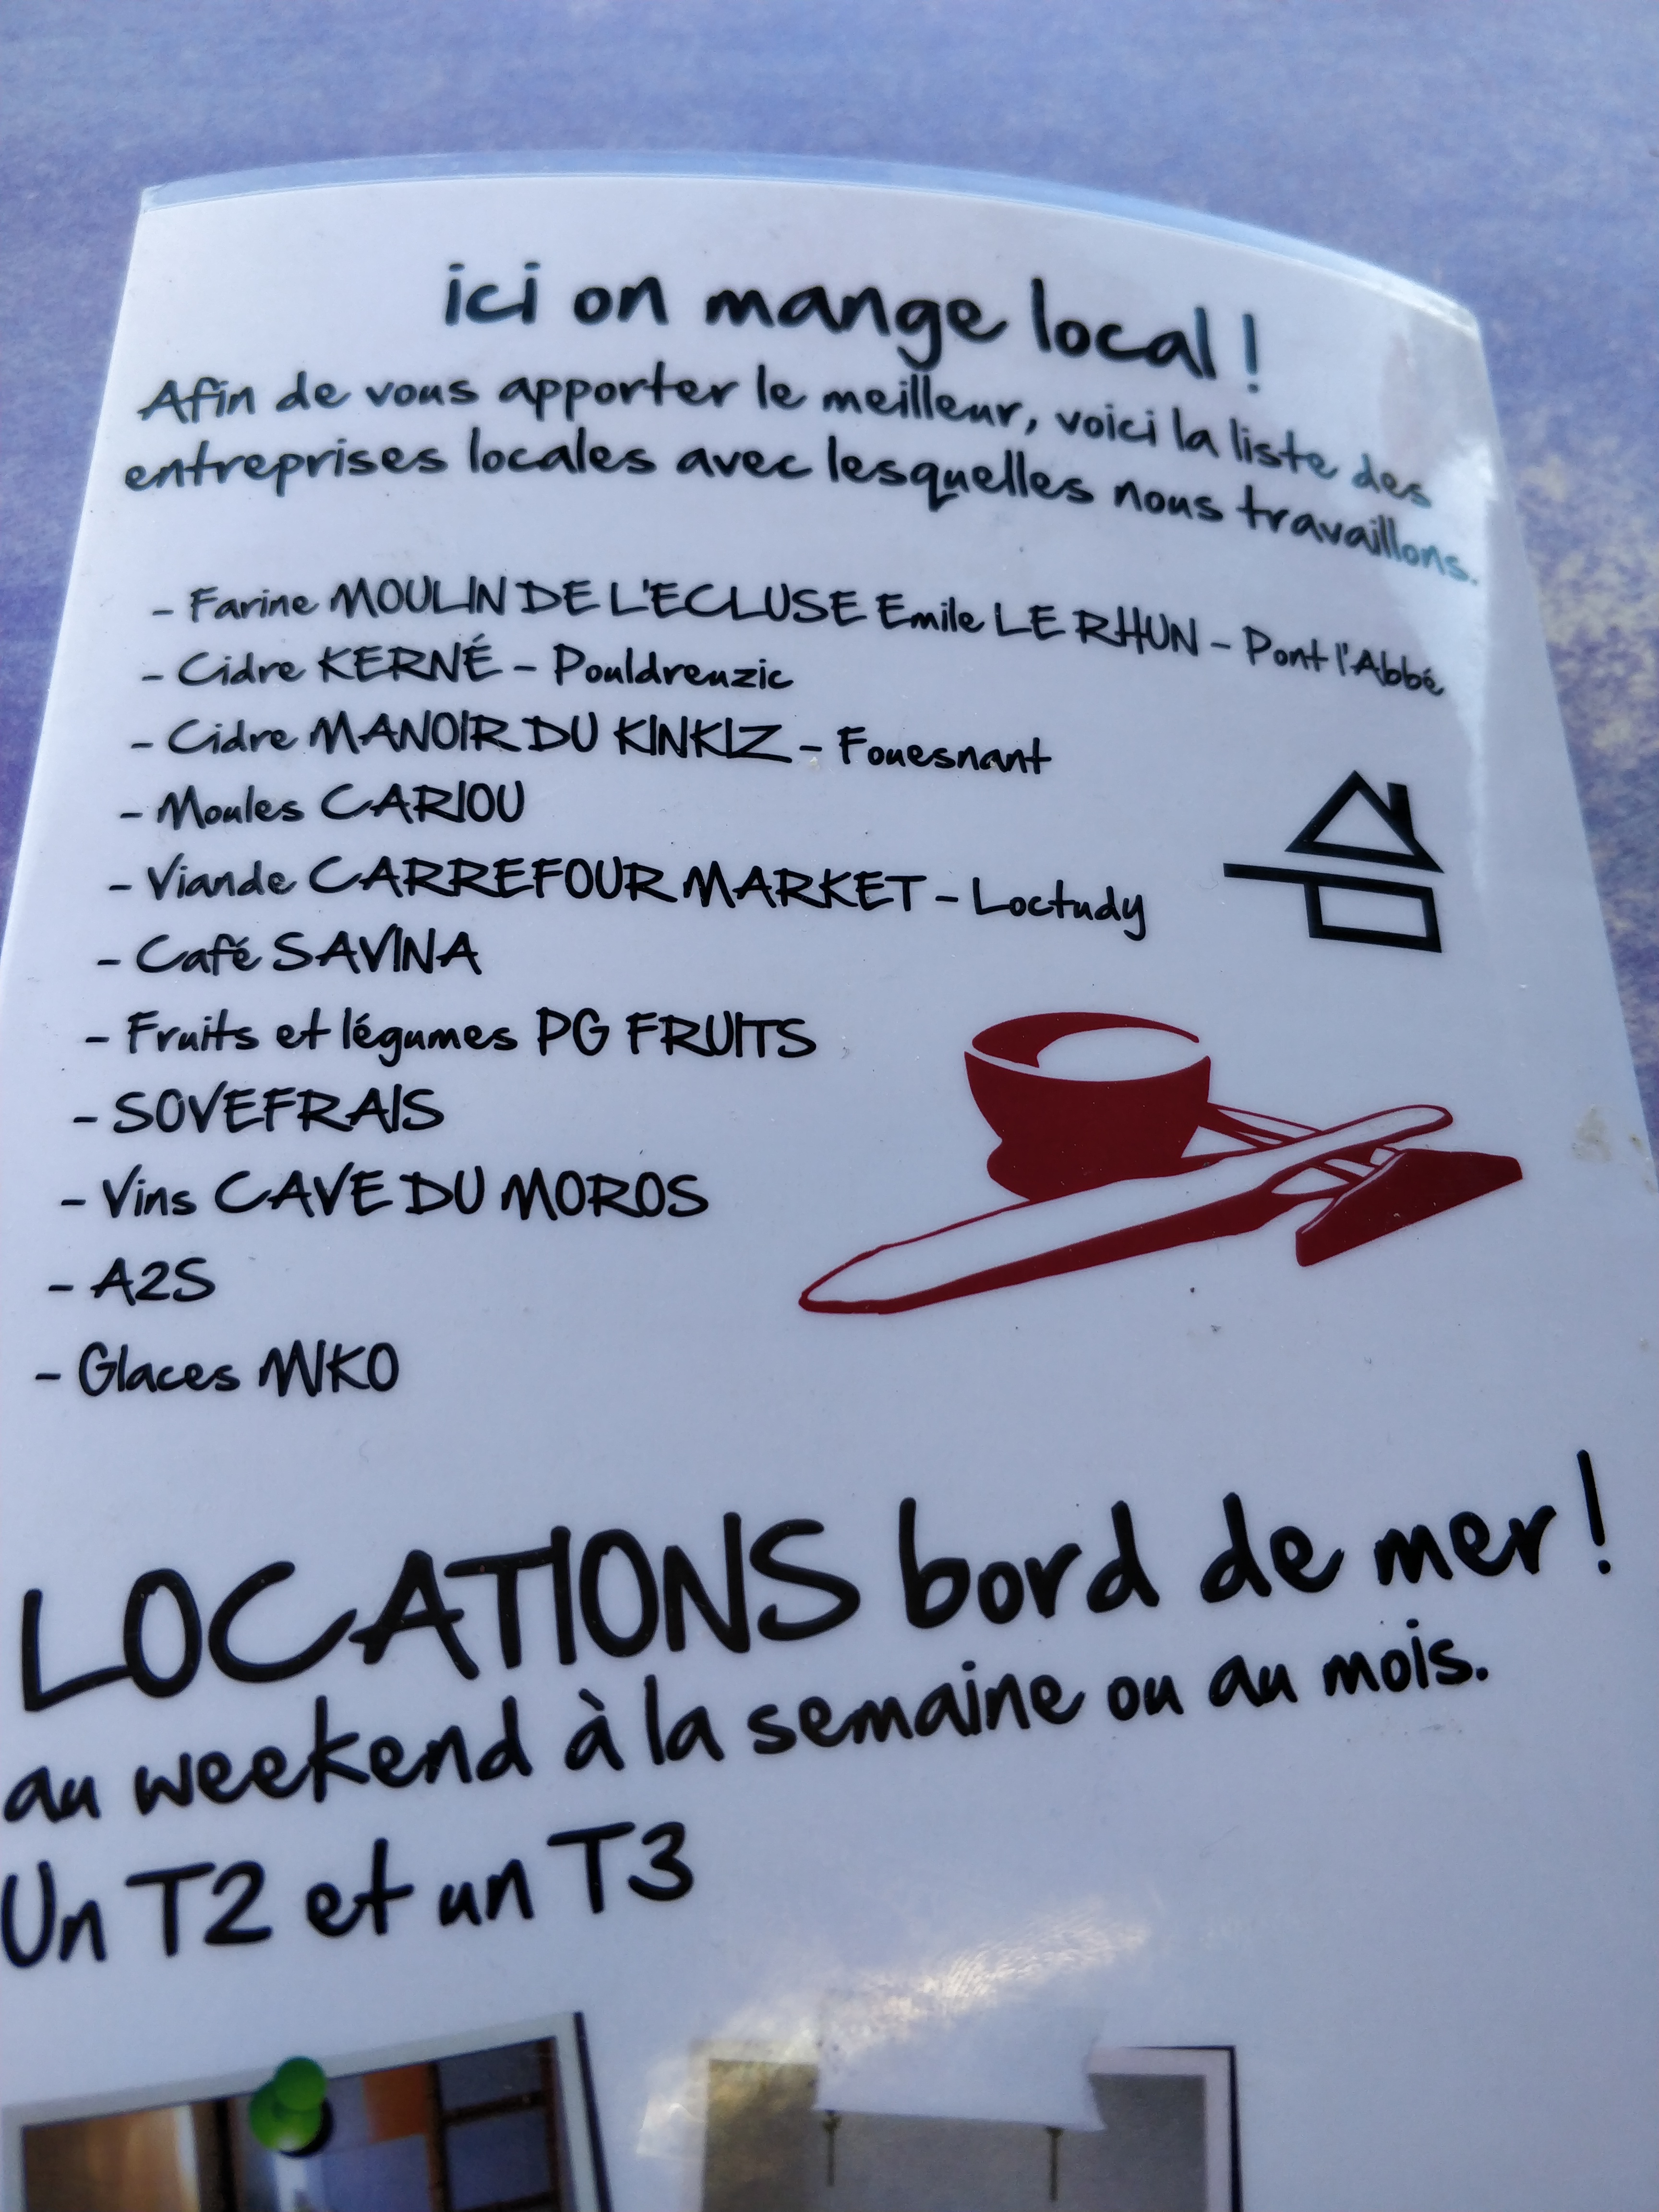 ici on mange local !
Afin de vous apporter le meilleur, voici la liste des
entreprises locales avec lesquelles nous travaillons.
- Farine MOULIN DE L'ECLUSE Emile LE RHUN - Pont l'Abbé
- Cidre KERNÉ - Pouldreuzic
- Cidre MANOIR DU KINKIZ - Fouesnant
- Moules CARIOU
- Viande CARREFOUR MARKET - Loctudy
- Café SAVINA
- Fruits et légumes PG FRUITS
- SOVEFRAIS
- Vins CAVE DU MOROS
- A2S
- Glaces MIKO
LOCATIONS bord de mer !
au weekend à la semaine ou au mois.
Un T2 et un T3